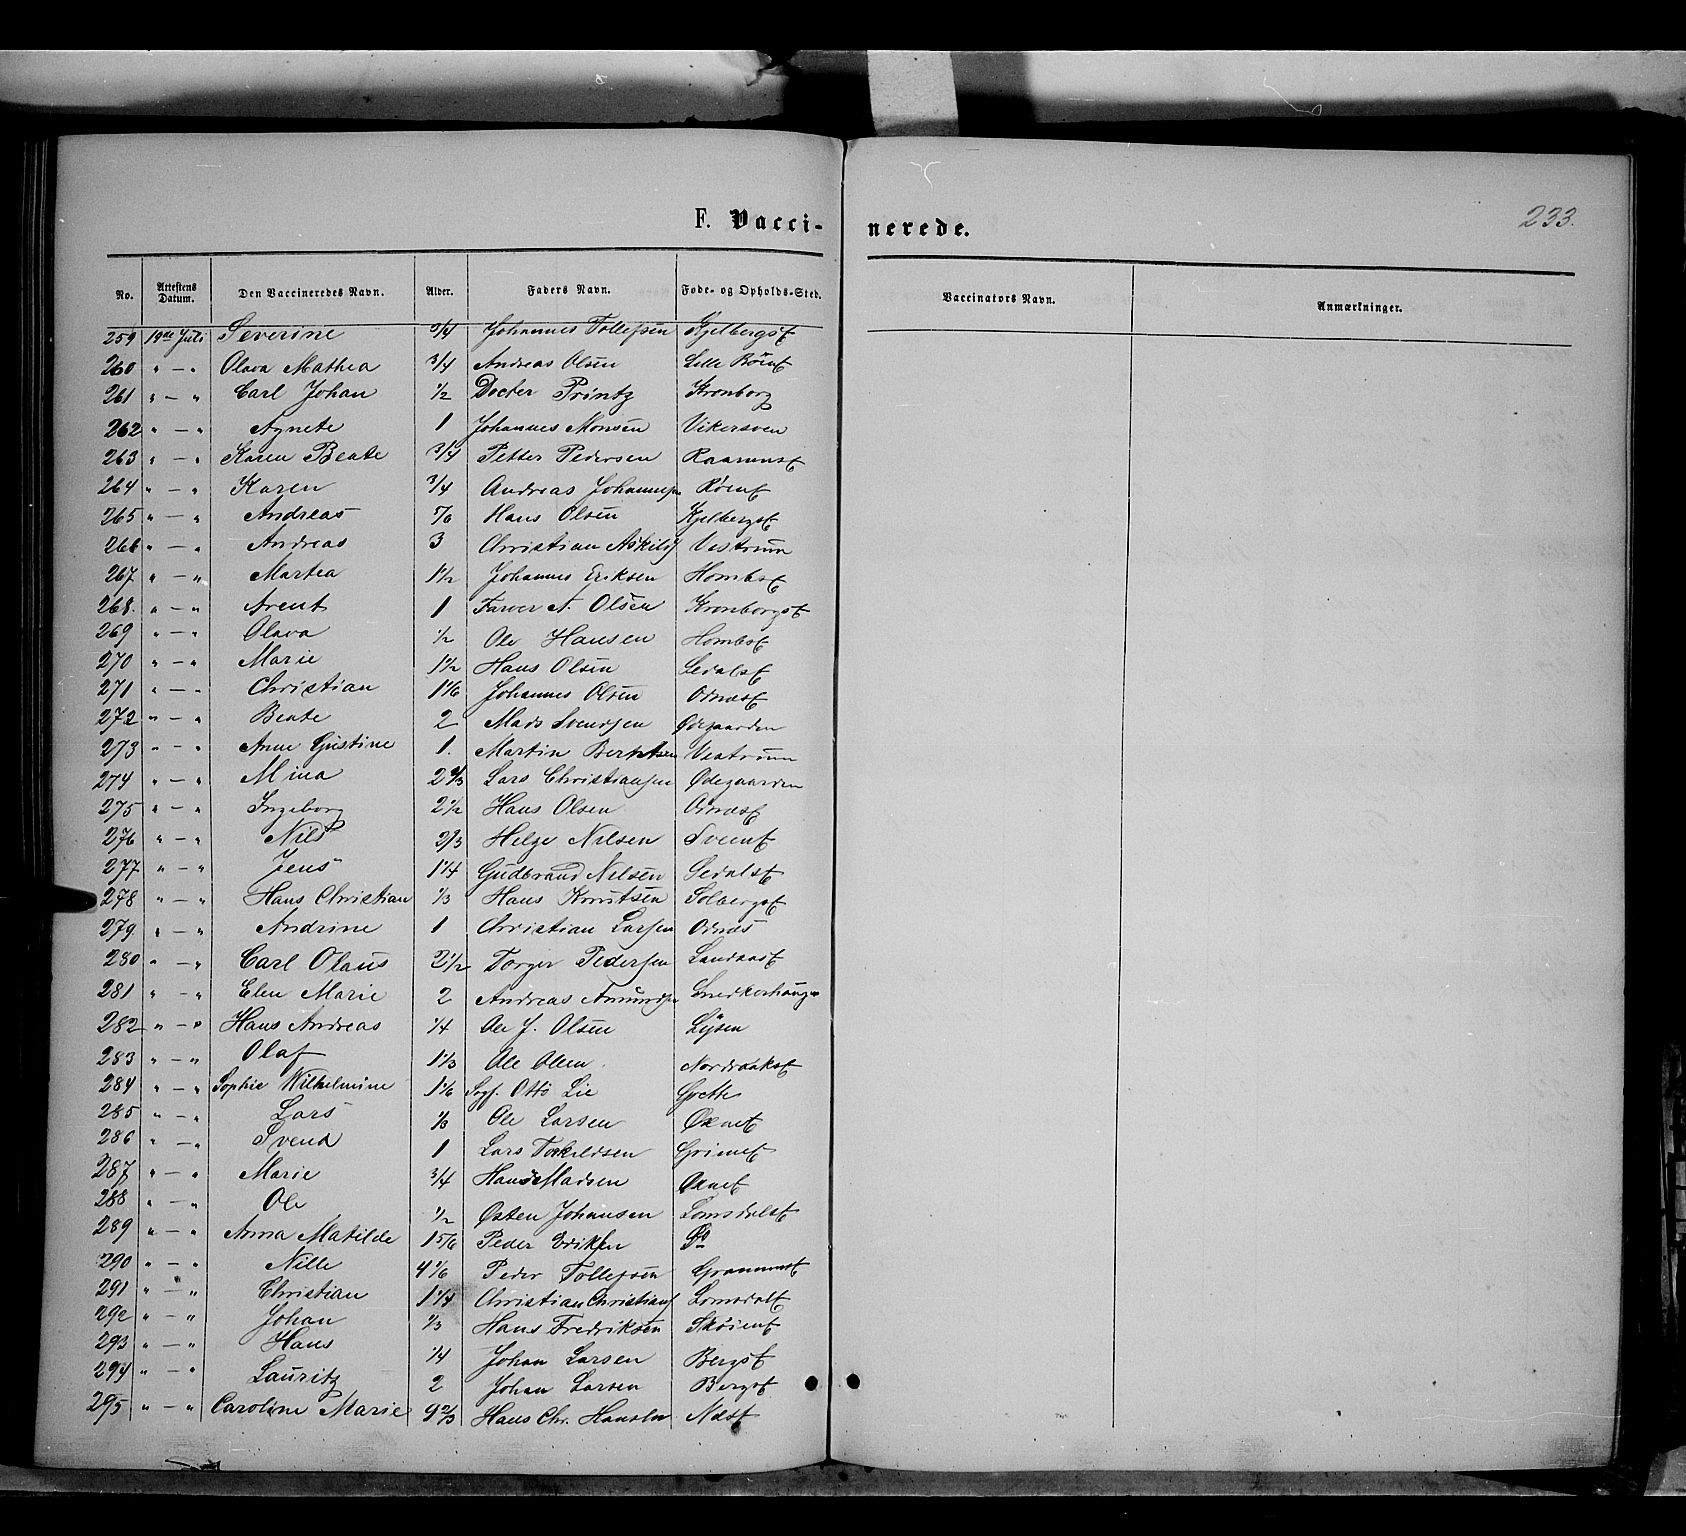 233.
F. Vacci- nerede.
No. Attestens Datum. Den Vaccineredes Navn. Alder. Faders Navn. Føde- og Opholds-Sted. Vaccinators Navn. Anmærkninger.
259 19de Juli Severine 3/4 Johannes Tollefsen Kjelbergst
260 " - " Olava Mathea 3/4 Andreas Olsen Lille Röent
261 " - " Carl Johan 1/2 Docter Printz Kronborg
262 " - " Agnete 1 Johannes Monsen Vikersven
263 " - " Karen Beate 3/4 Petter Pedersen Raamnst
264 " - " Karen 3/4 Andreas Johannesn Röent
265 " - " Andreas 5/6 Hans Olsen Kjelbergst
266 " - " Andreas 3 Christian Askils Vestrum
267 " - " Martea 1 1/2 Johannes Eriksen Hombst
268. " - " Arent 1 Farver A. Olsen Kronborgst
269 " - " Olava 1/2 Ole Hansen Hombst
270 " - " Marie 1 1/2 Hans Olsen Sedalst
271 " - " Christian 1 1/6 Johannes Olsen Odnæst
272 " - " Beate 2 Mads Svendsen Ødegaarden
273 " - " Anne Gustine 1. Martin Berntsen Vestrum
274 " - " Mina 2 2/3 Lars Christiansen Ødegaarden
275 " - " Ingeborg 2 1/2 Hans Olsen Odnæst
276 " - " Nils 2/3 Helge Nilsen Sveent
277 " - " Jens 1 1/4 Gudbrand Nilsen Sedalst
278 " - " Hans Christian 1/3 Hans Knutsen Solbergst
279 " - " Andrine 1 Christian Larsen Odnæs
280 " - " Carl Olaus 2 1/2 Torger Pedersen Landaast
281 " - " Elen Marie 2 Andreas Amundsn Snedkerhaugen
282 " - " Hans Andreas 1/4 Ole J. Olsen Lysen
283 " - " Olaf 1 1/3 Ole Olsen Nordraakst
284 " - " Sophie Wilhelmine 1 1/6 Sogf. Otto Lie Grette
285 " - " Lars 1/3 Ole Larsen Øknet
286 " - " Svend 1 Lars Torkildsen Grimet
287 " - " Marie 3/4 Hans Madsen Øknet
288 " - " Ole 1/2 Østen Johansen Lomsdalst
289 " - " Anna Matilde 1 5/6 Peder Eriksen Do
290 " - " Nille 4 1/6 Peder Tollefsen Granumst
291 " - " Christian 1 1/4 Christian Christians Lomsdalt
292 " - " Johan 1/3 Hans Fredriksen Skøient
293 " - " Hans 1/4 Johan Larsen Bergst
294 " - " Lauritz 2 Johan Larsen Bergst
295 " - " Caroline Marie 9 2/3 Hans Chr. Hansen Næst